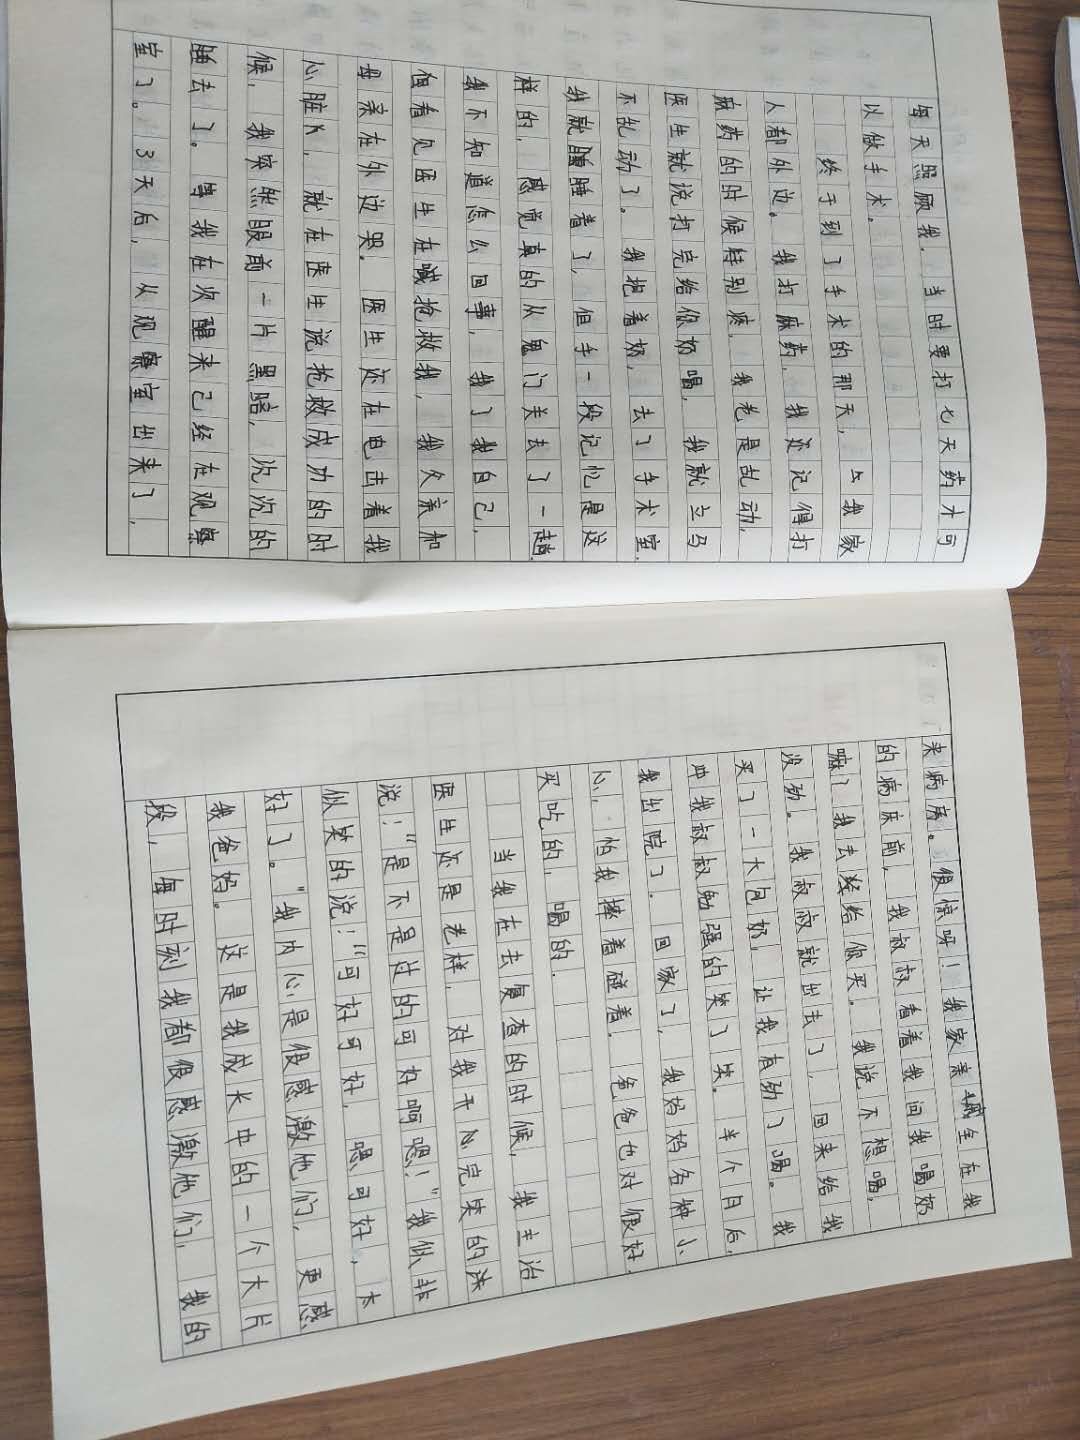 每天照顾我。当时要打七天药才可
以做手术。
终于到了手术的那天，与我家
人都外边。我打麻药，我还记得打
麻药的时候特别疼，我老是乱动，
医生就说打完给你奶喝，我就立马
不乱动了。我抱着奶，去了手术室，
我就睡睡着了，但手一段记忆是这
样的，感觉真的从鬼门关去了一趟，
我不知道怎么回事，我了我自己，
但看见医生在喊抢救我，我父亲和
母亲在外边哭。医生还在电击着我
心脏K，就在医生说抢救成功的时
候，我突然眼前一片黑暗，沉沉的
睡去了。等我在次醒来已经在观察
室了。3天后，从观察室出来了，
来病房。很惊呀！我家亲戚坐在我
的病床前，我叔叔看着我问我喝奶
嘛？我去给你买。我说不想喝，
没劲。我叔叔就出去了，回来给我
买了一大包奶，让我有劲了喝。我
冲我叔叔勉强的笑了笑。半个月后，
我出院了，回家了，我妈妈各种小
心，怕我摔着碰着，爸爸也对很好，
买吃的，喝的。
当我在去复查的时候，我主治
医生还是老样，对我开心完笑的淡
说：“是不是过的可好啊嗯！”我似非
似笑的说：“可好可好，嗯可好，太
好了。”我内心是很感激他们，更感
我爸妈。这是我成长中的一个大片
段，每时刻我都很感激他们，我的